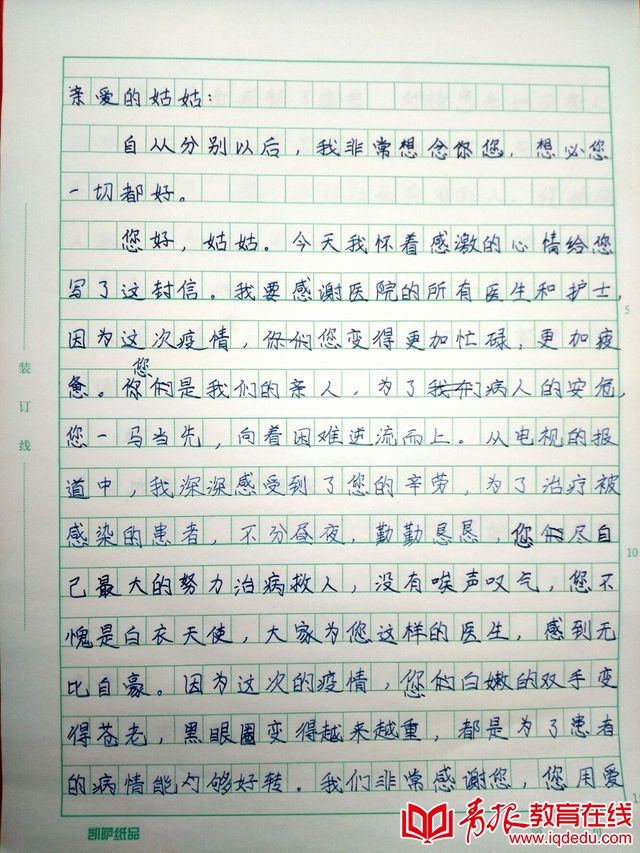 亲爱的姑姑：
自从分别以后，我非常想念你您，想必您
一切都好。
您好，姑姑。今天我怀着感激的心情给您
写了这封信。我要感谢医院的所有医生和护士，
因为这次疫情，你们您变得更加忙碌，更加疲
惫。您你们是我们的亲人，为了我们病人的安危，
您一马当先，向着困难逆流而上。从电视的报
道中，我深深感受到了您的辛劳，为了治疗被
感染的患者，不分昼夜，勤勤恳恳，您们尽自
己最大的努力治病救人，没有唉声叹气，您不
愧是白衣天使，大家为您这样的医生，感到无
比自豪。因为这次的疫情，您们白嫩的双手变
得苍老，黑眼圈变得越来越重，都是为了患者
的病情能够好转。我们非常感谢您，您用爱
装订线
5
10
凯萨纸品
青报教育在线
www.iqdedu.com